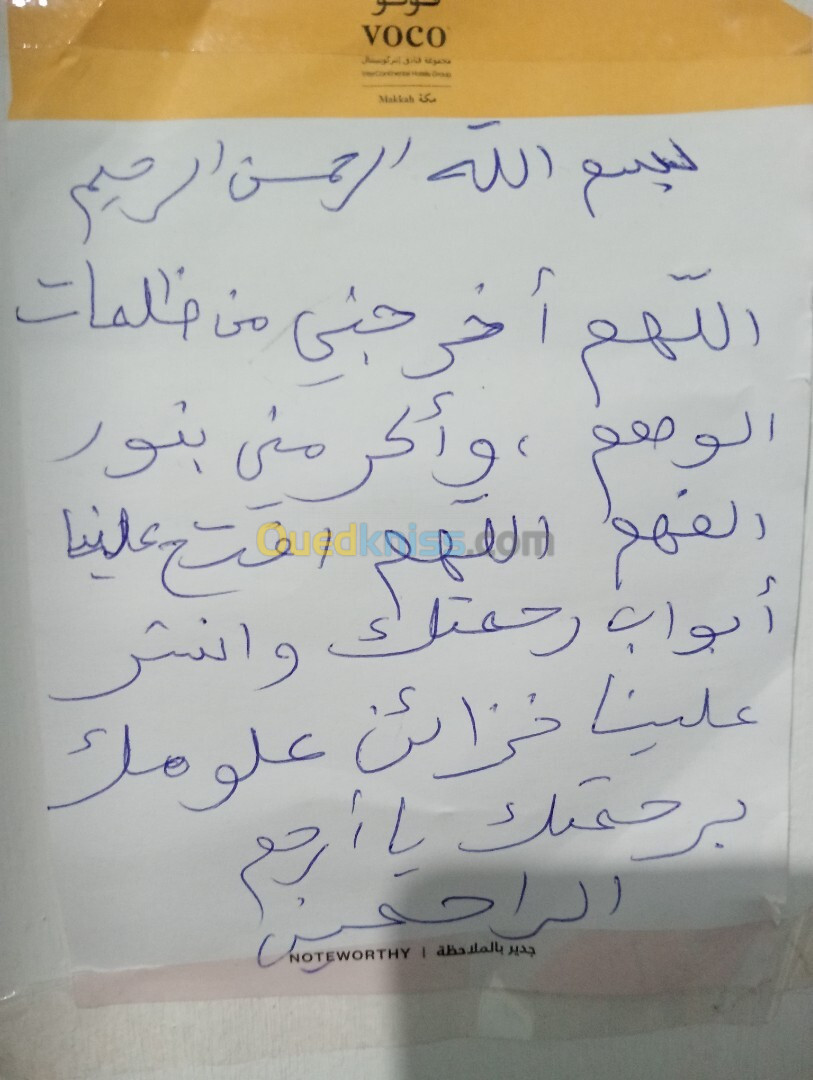 ڤوكو
VOCO
مجموعة فنادق إنتركونتيننتال
InterContinental Hotels Group
Makkah مكة
بسم الله الرحمن الرحيم
اللّهم أخرجني من ظلمات
الوهم ، وأكرمني بنور
الفهم اللّهم افتح علينا
أبواب رحمتك وانشر
علينا خزائن علومك
برحمتك يا أرحم
الراحمين
Ouedkniss.com
NOTEWORTHY | جدير بالملاحظة